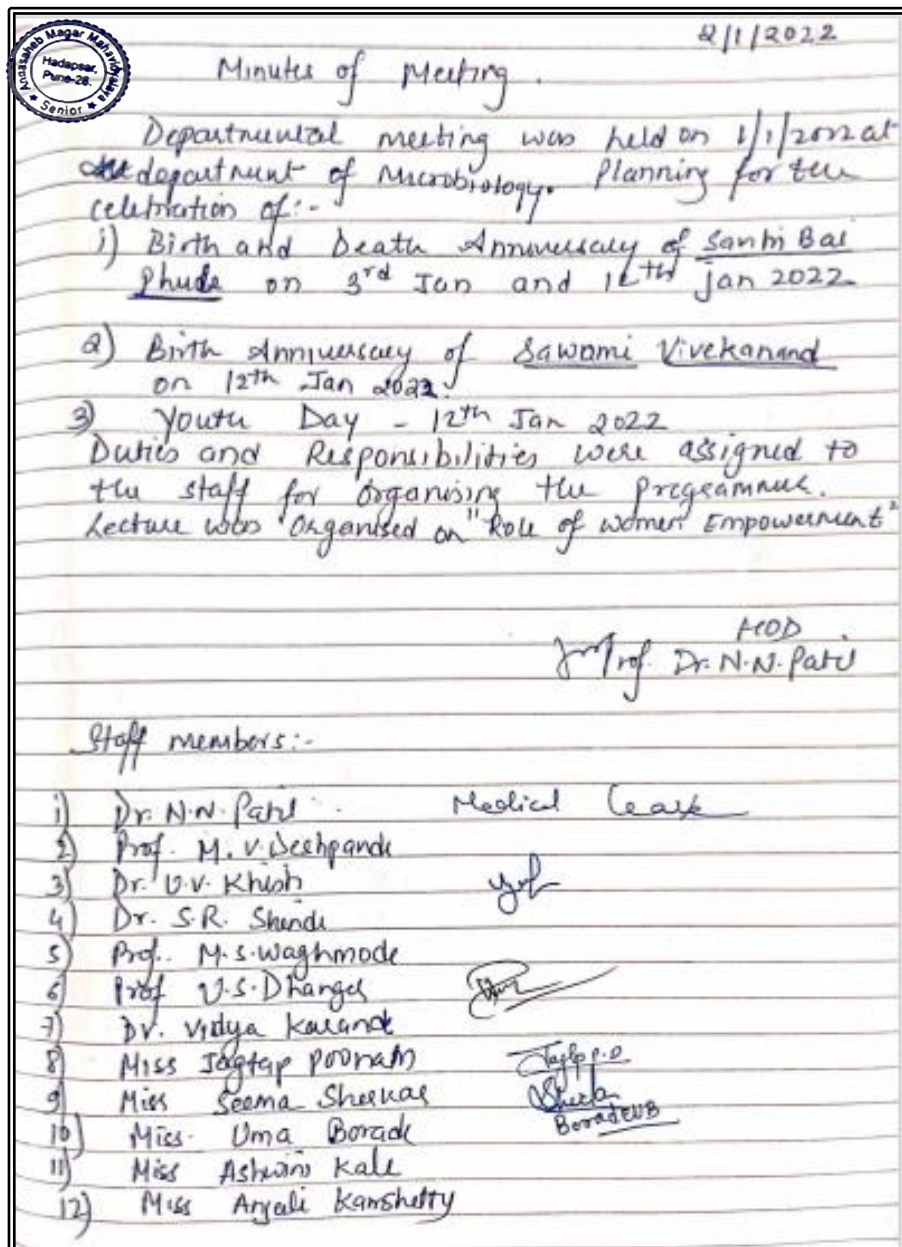 Annasaheb Magar Mahavidyalaya
Hadapsar,
Pune-28.
★ Senior ★
2/1/2022
Minutes of Meeting.
Departmental meeting was held on 1/1/2022 at
department of Microbiology. Planning for the
celebration of:-
1) Birth and Death Anniversary of
Phule on 3rd Jan and Jan 2022
2) Birth Anniversary of Sawami Vivekanand
on 12th Jan 2022.
3) Youth Day - 12th Jan 2022
Duties and Responsibilities were assigned to
the staff for organising the programme.
Lecture was Organised on "Role of women Empowerment"
HOD
Prof. Dr. N.N. Patil
Staff members:-
1) Dr. N.N. Patil Medical Leave
2) Prof. M.V. Deshpande
3) Dr. V.V.
4) Dr. S.R. Shinde
5) Prof. M.S. Waghmode
6) Prof V.S.
7) Dr. Vidya Karande
8) Miss Jagtap Poonam
9) Miss Seema
10) Miss. Uma Borade BoradeUB
11) Miss Ashwini Kale
12) Miss Anjali Kamshetty